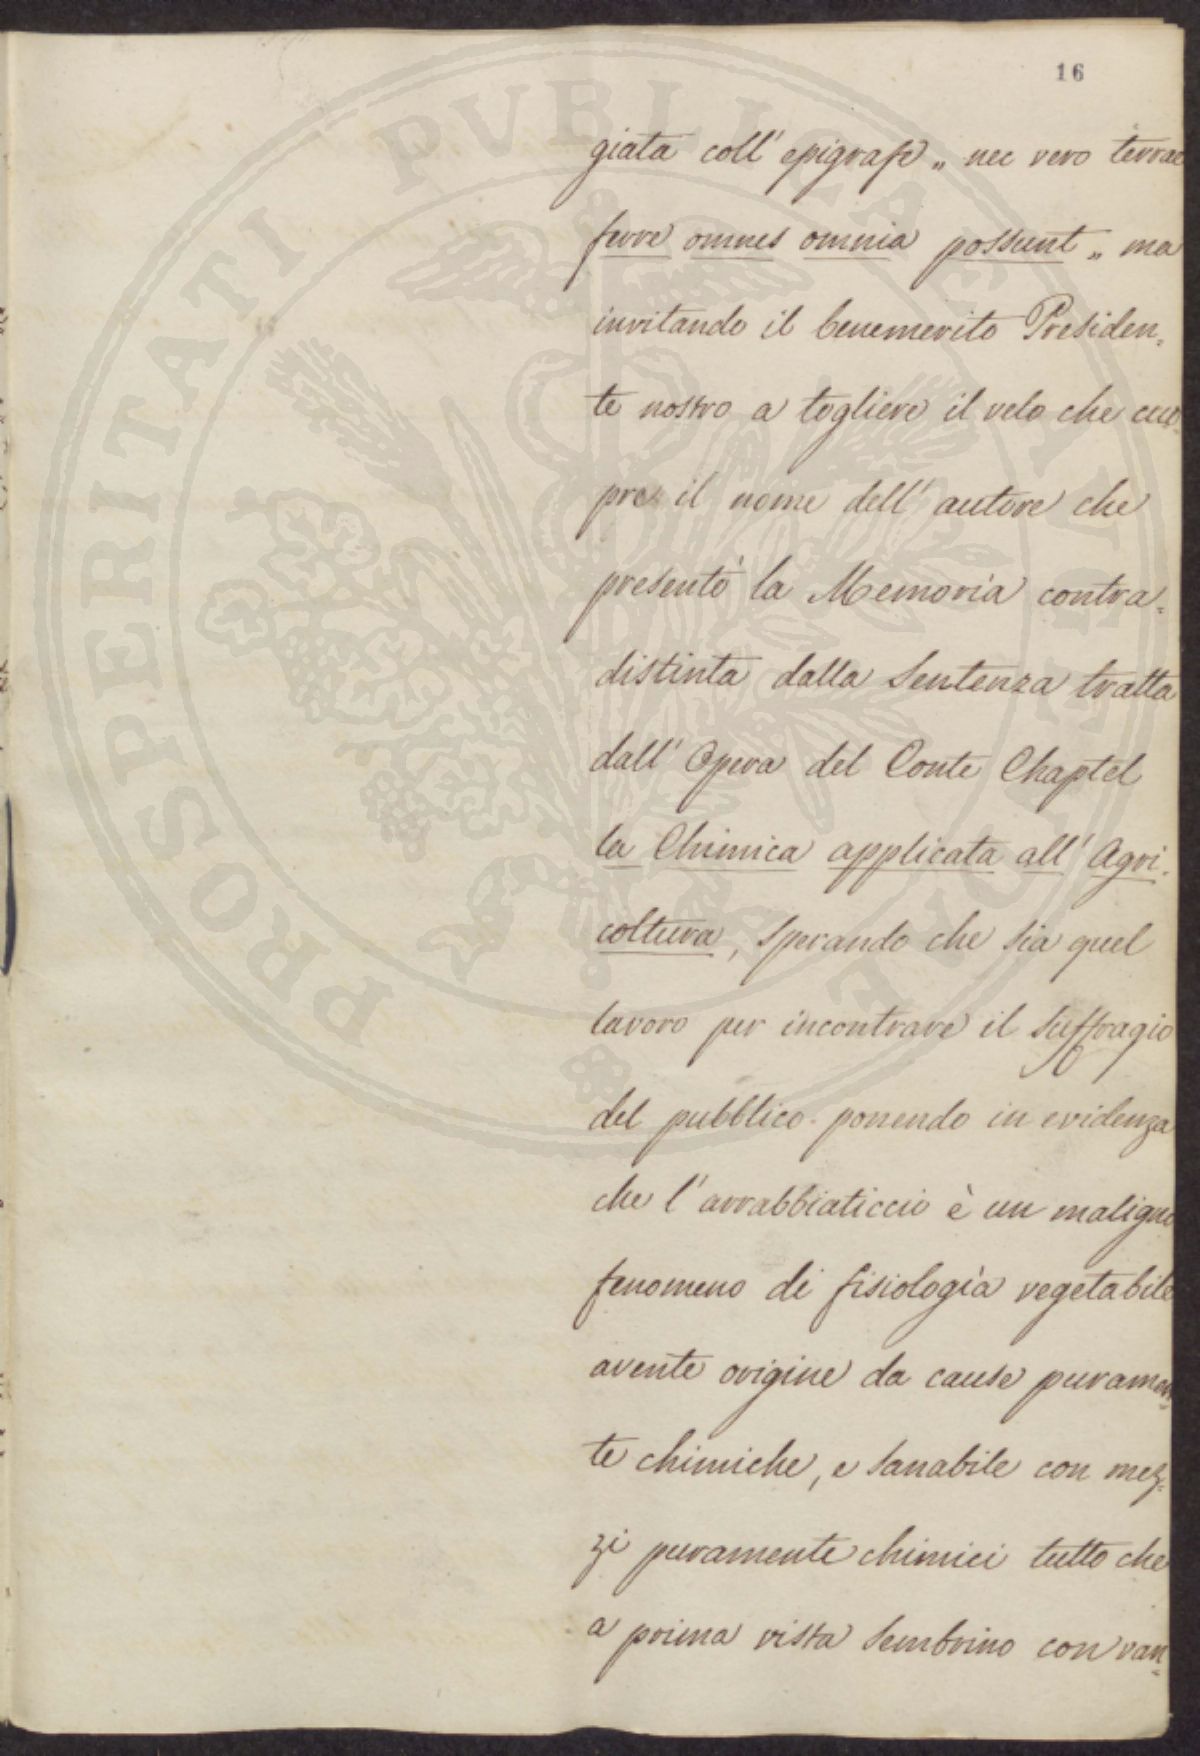 16
giata coll' epigrafe „ nec vero terrae
ferre omnes omnia possunt „ ma
invitando il benemerito Presiden=
te nostro a togliere il velo che cuo=
pre il nome dell' autore che
presentò la Memoria contra=
distinta dalla Sentenza tratta
dall' Opera del Conte Chaptel
la Chimica applicata all' Agri=
coltura, sperando che sia quel
lavoro per incontrare il suffragio
del pubblico ponendo in evidenza
che l' arrabbiaticcio è un maligno
fenomeno di fisiologia vegetabile
avente origine da cause puramen=
te chimiche, e sanabile con mez=
zi puramente chimici tutto che
a prima vista sembrino con van=
PROSPERITATI PVBLICAE AVGENDAE